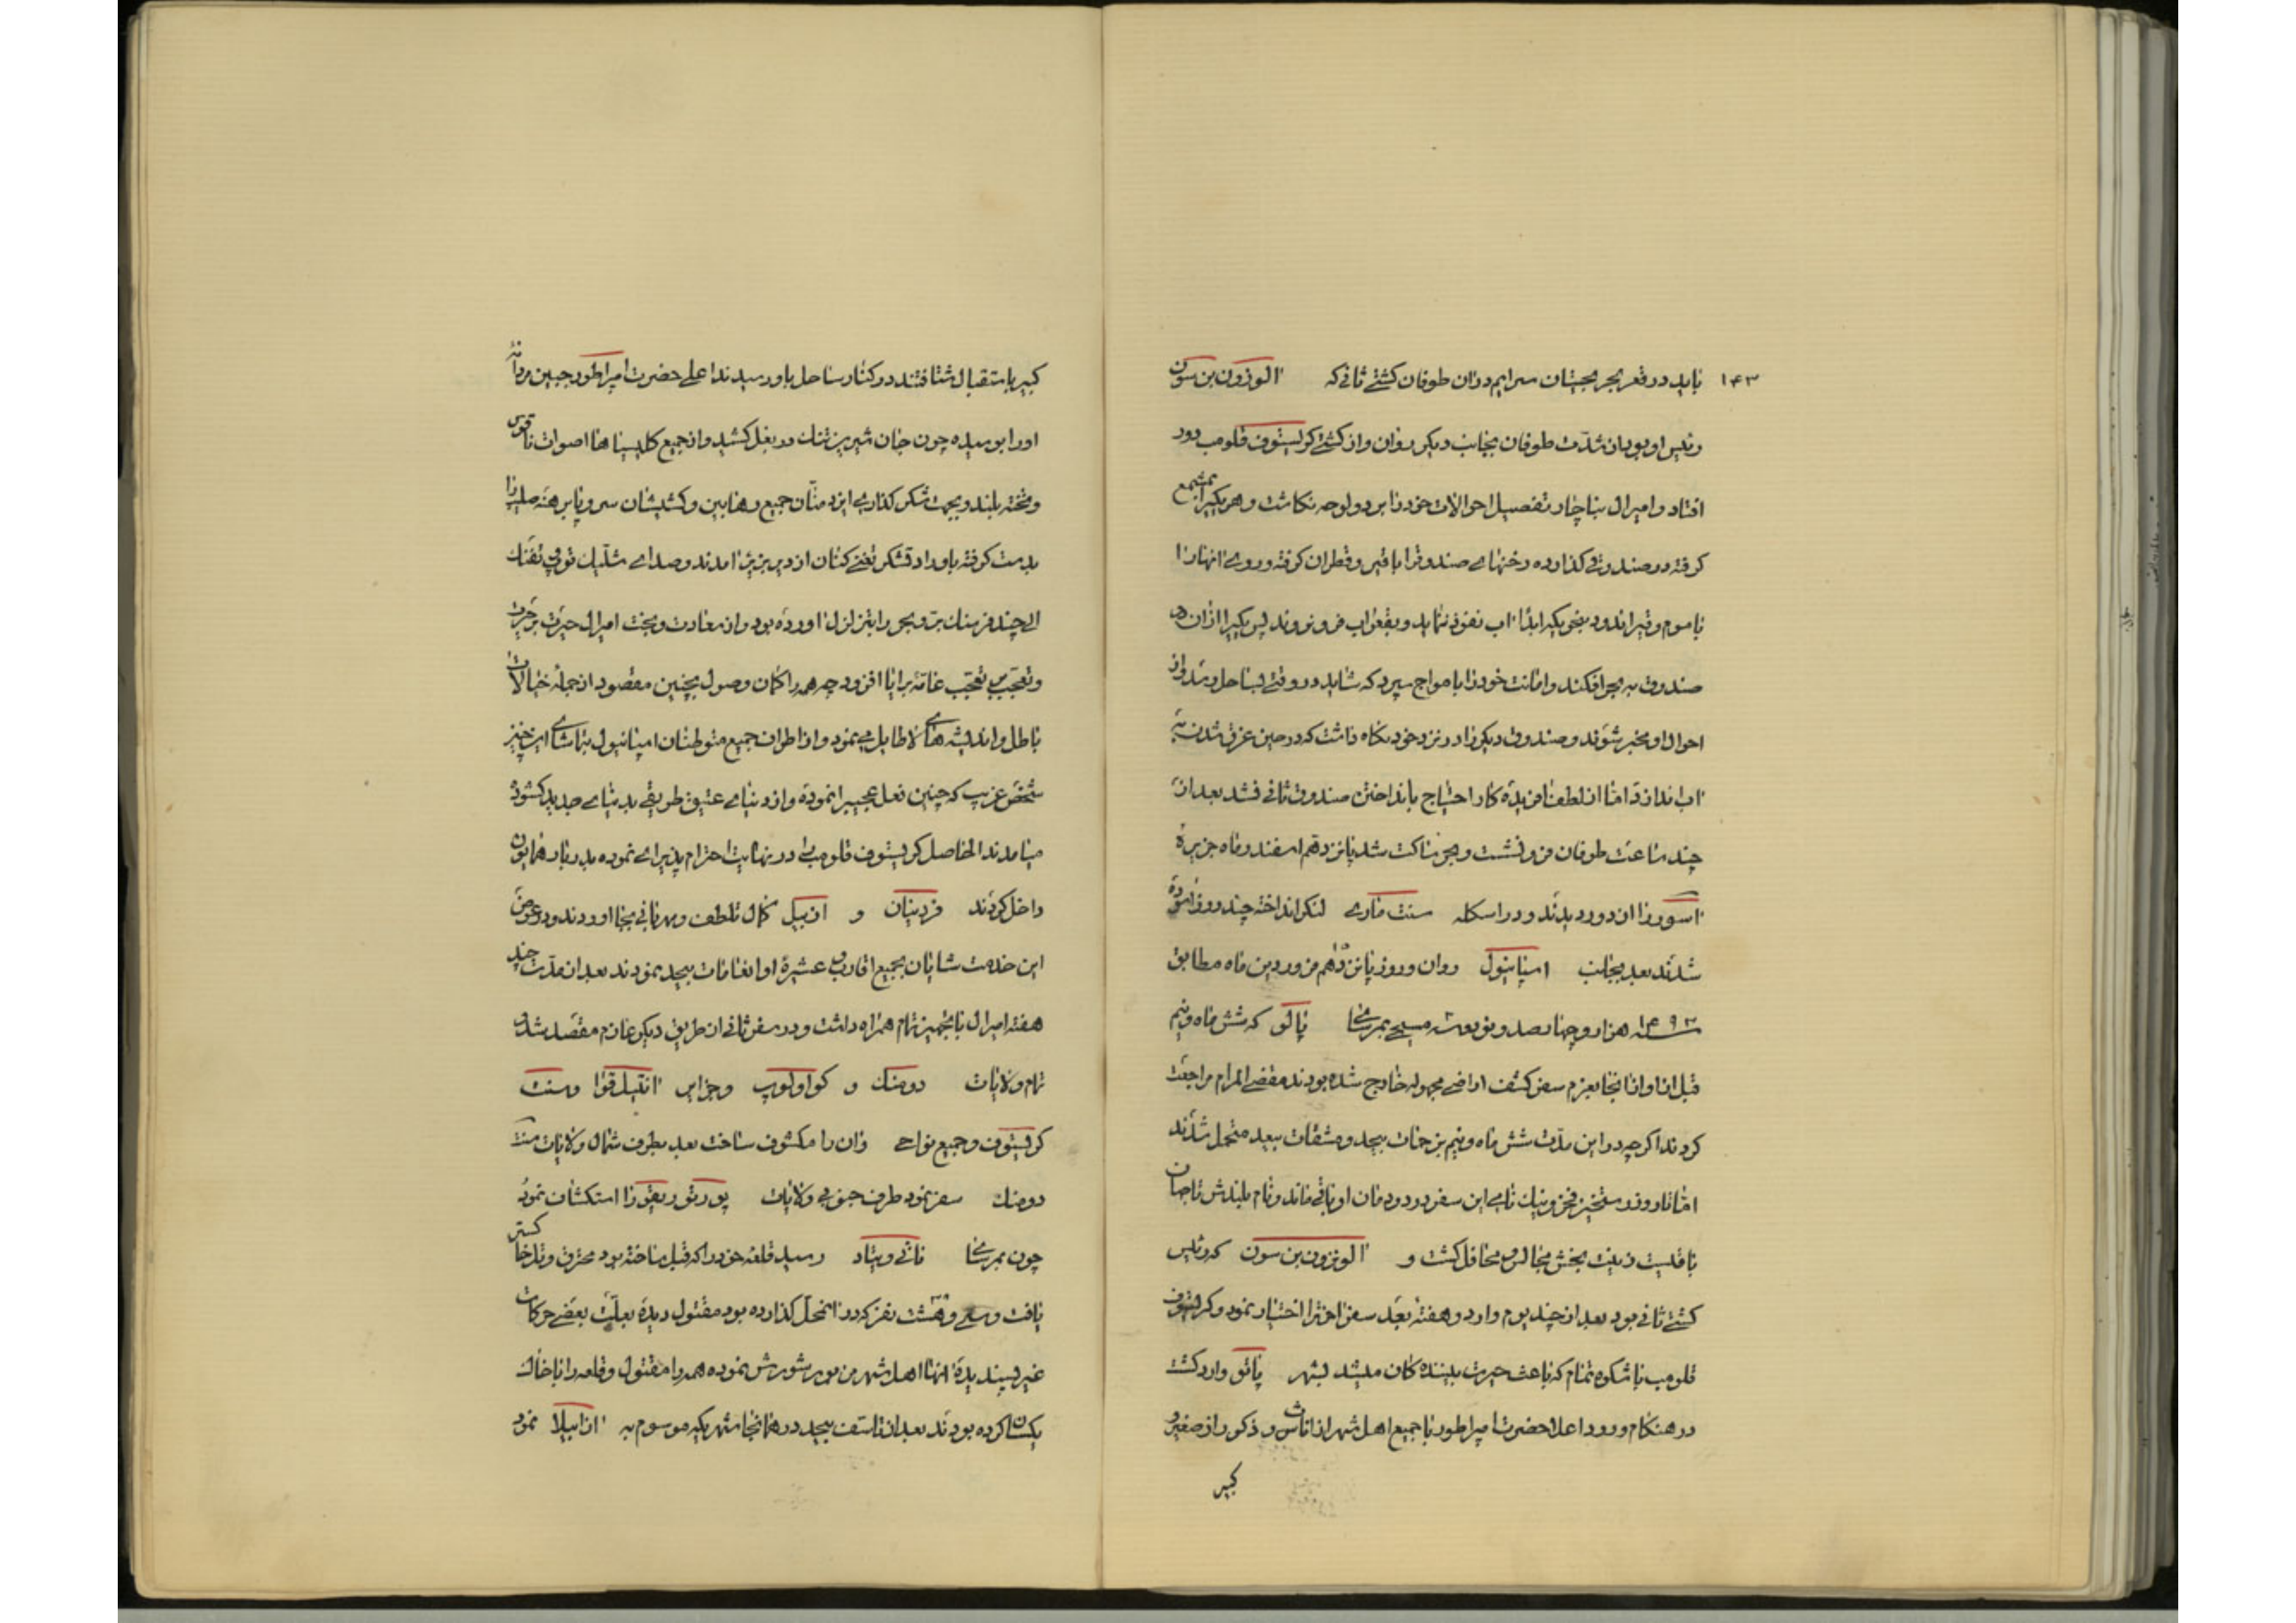 ۱۴۳ باید در قعر بحر بجیتان سرایم در ان طوفان کشتی ثانی که الونزون بن سون
رئیس او بود از شدت طوفان بجانب دیکر روان و از کشتی کرلستوف قلومب دور
افتاد و امیرال بناچار تفصیل احوالات خود را بر دو لوحه نکاشت و هر یکیرا بمشمع
کرفته در صندوقی کذارده رخنهای صندوقرا با قیر و قطران کرفته و روی انهارا
با موم و قیر اندود بنحویکه ابدًا اب نفوذ ننماید و بقعر اب فرو نرود پس یکیرا ازان دو
صندوق به بحر افکند و امانت خود را با مواج سپرد که شاید در وقتی بساحل رسد و از
احوال او مخبر شوند و صندوق دیکر را در نزد خود نکاه داشت که در حین غرق شدن به
اب اندازد اما از لطف افریدهٔ کار احتیاج بانداختن صندوق ثانی نشد بعد از
چند ساعت طوفان فرو نشست و بحر ساکت شد پانزدهم اسفند و ماه جزیرهٔ
اسور را از دور دیدند و در اسکله سنت ماری لنکر انداخته چند روز اسوده
شدند بعد بجانب اسپانیول روان و روز پانزدهم فروردین ماه مطابق
سنه ۱۴۹۳ هزار و چهار صد و نود و سه مسیحی بمرسای پالو که شش ماه و نیم
قبل ازان از انجا بعزم سفر کشف اراضی مجهوله خارج شده بودند مقضی المرام مراجعت
کردند اکرچه در این مدت شش ماه و نیم بزحمات بیحد و مشقات بیعد متحمل شدند
اما تا روز رستخیز فخر و نیک نامی این سفر در دودمان او باقی ماند و نام بلندش تا جهان
باقیست زینت بخش مجالس و محافل کشت و الونزون بن سون که رئیس
کشتی ثانی بود بعد از چند یوم وارد و هفتهٔ بعد سفر اخرترا اختیار نمود و کرلستوف
قلومب با شکوه تمام که باعث حیرت بیننده کان میشد بشهر پالو وارد کشت
در هنکام ورود اعلاحضرت امپراطور با جمیع اهل شهر از اناث و ذکور از صغیر و
کبیر
کبیر باستقبال شتافتند در کنار ساحل باو رسیدند اعلی حضرت امپراطور جبین مردانهٔ
اورا بوسیده چون جان شیرین تنک در بغل کشید و از جمیع کلیسیاها اصوات ناقوس
و مخته بلند و بجهت شکر کذاری ایزد منّان جمیع رهابین و کشیشان سر و پا برهنه صلیبرا
بدست کرفته باوراد تشکر تغنی کنان از دیر بزیر امدند و صدای شلیک توپ و تفنک
الی چند فرسنک برّ و بحر را بتزلزل اورده بود و از معاودت و بخت امیرال حیرت بر حیرت
و تعجب بر تعجب عامّهٔ برایا افزود چه همه را کمان وصول بچنین مقصود از جمله خیالات
باطل و اندیشه‌های لاطایل می‌نمود و از اطراف جمیع متوطنان اسپانیول بتماشای این چنین
شخص غریب که چنین فعل عجیبرا نموده و از دنیای عتیق طریقی بدنیای جدید کشوده
میامدند الحاصل کرلستوف قلومب را در نهایت احترام پذیرای نموده بدربار همایون
داخل کردند فردینان و ازبیل کمال تلطف و مهربانی بجا اوردند و در عوض
این خدمت شایان بجمیع اقارب و عشیرهٔ او انعامات بیحد نمودند بعد از مدت چند
هفته امیرال با تجهیز تمام همراه داشت و در سفر ثانی از طریق دیکر عازم مقصد شد و
تمام ولایات دومنک و کوادلوپ و جزایر انتیل قوا و سنت
کرلستوف و جمیع نواحی ذان را مکشوف ساخت بعد بطرف شمال ولایات سنت
دومنک سفر نمود طرف جنوبی ولایات پورتو ریقو را استکشاف نمود
چون بمرسای ناتی ویتاد رسید قلعه خود را که قبل ساخته بود محترق و تل خاکستر
یافت و سی و هشت نفر که در انمحل کذارده بود مقتول دیده بعلّت بعضی حرکات
غیر پسندیدهٔ انها اهل شهر مزبور شورش نموده همه را مقتول و قلعه را با خاک
یکسان کرده بودند بعد از تاسف بیحد در همانجا شهریکه موسوم به ازابیلا نمود